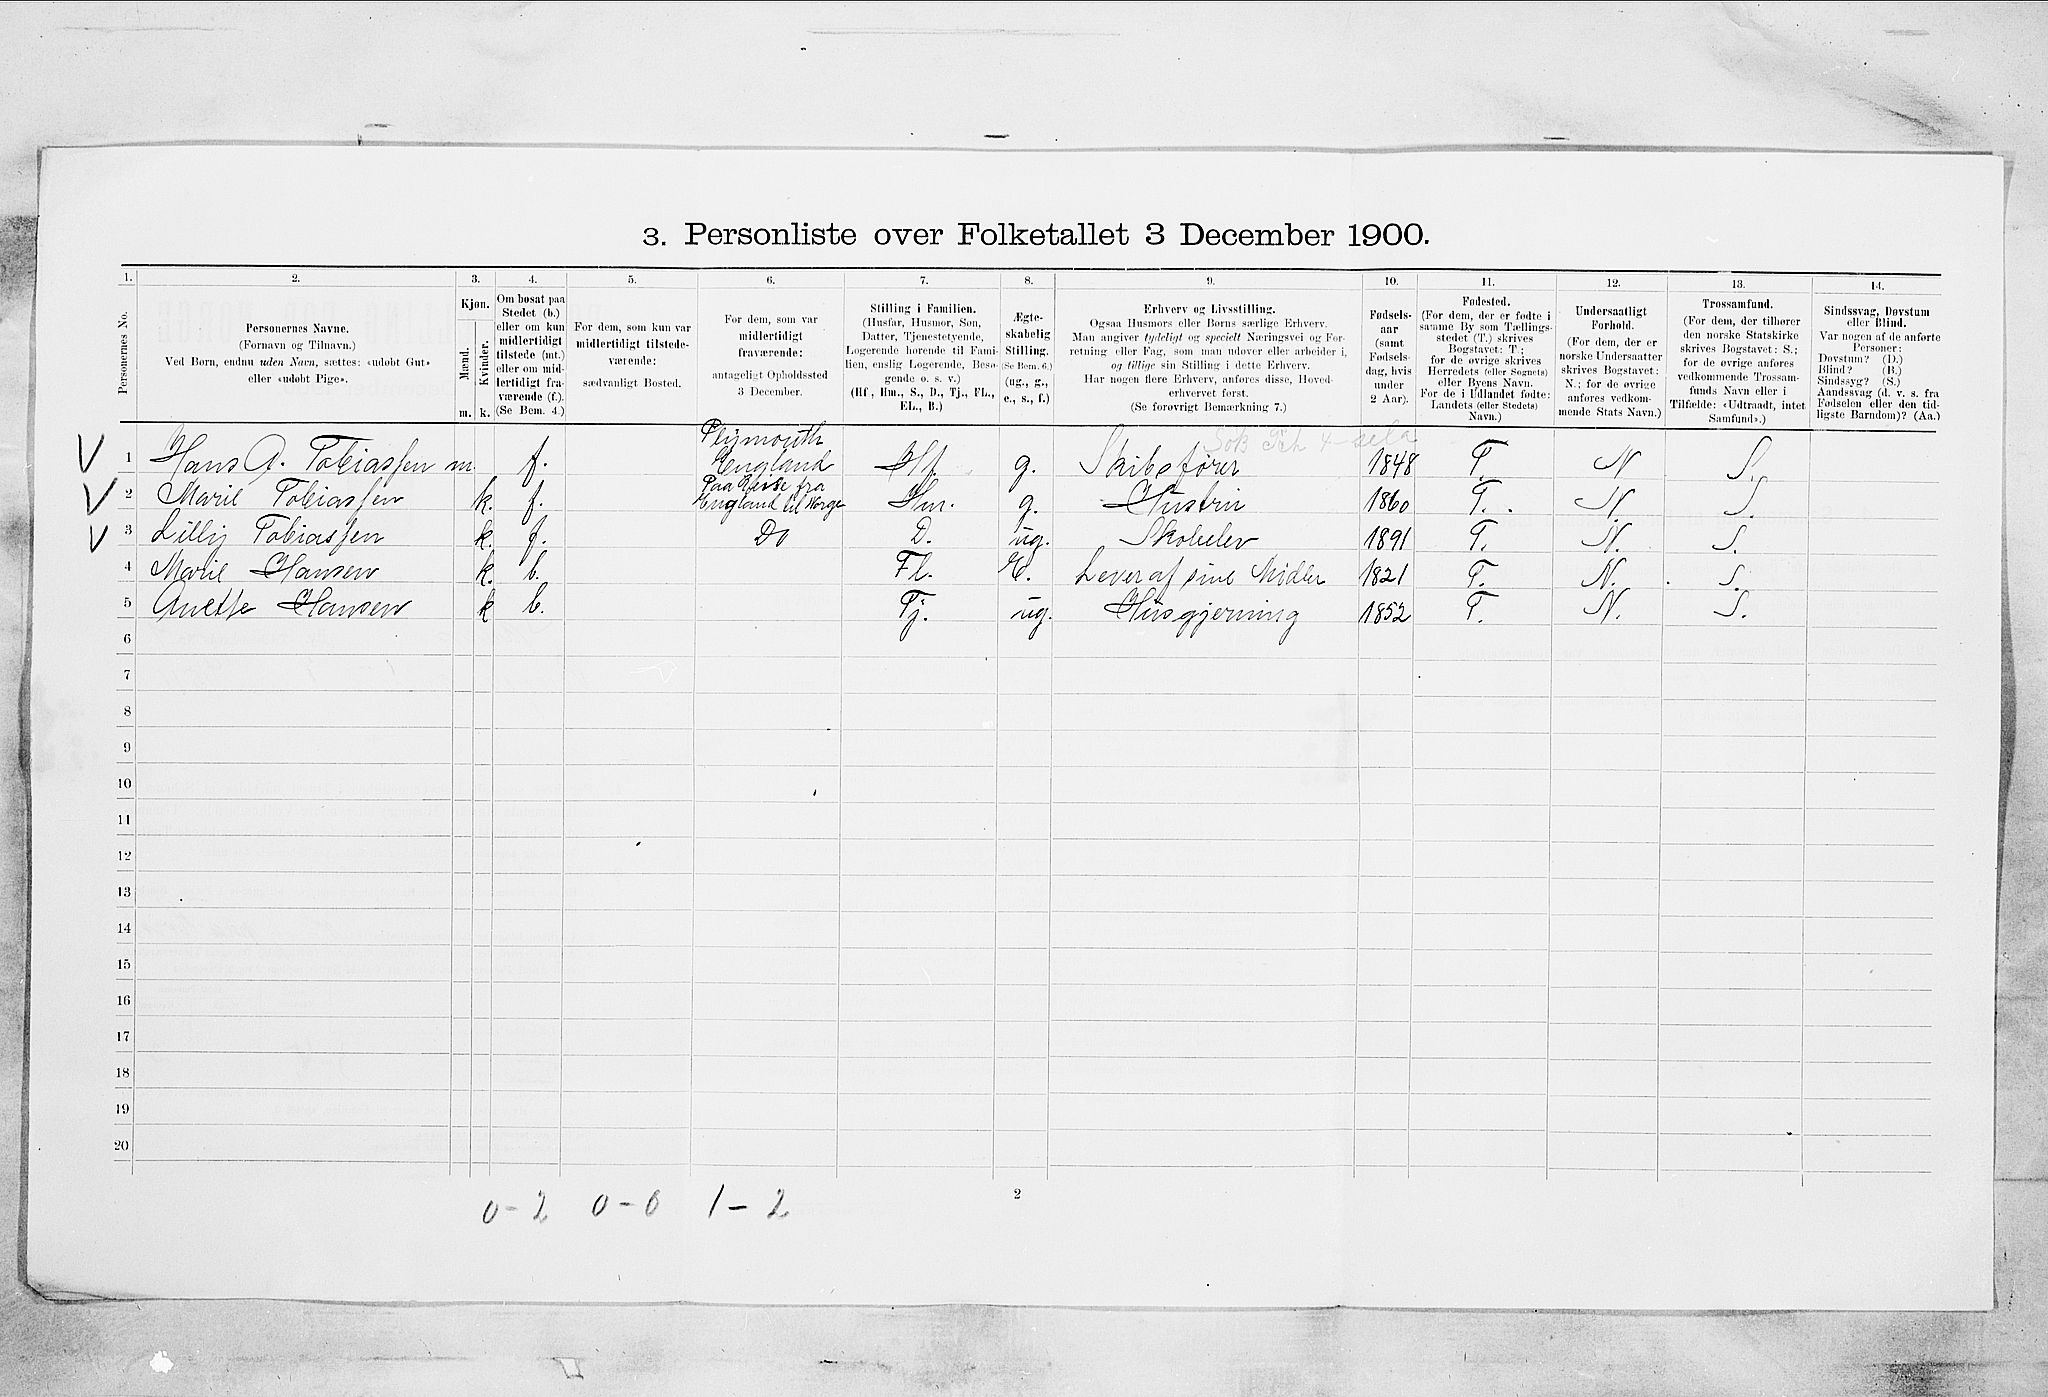 3. Personliste over Folketallet 3 December 1900.
1. 2. 3. 4. 5. 6. 7. 8. 9. 10. 11. 12. 13. 14.
Personernes No.
Personernes Navne.
(Fornavn og Tilnavn.)
Ved Børn, endnu uden Navn, sættes: «udøbt Gut»
eller «udøbt Pige».
Kjøn.
Mænd.
Kvinder.
m. k.
Om bosat paa
Stedet (b.)
eller om kun
midlertidigt
tilstede (mt.)
eller om mid-
lertidigt fra-
værende (f.).
(Se Bem. 4.)
For dem, som kun var
midlertidigt tilstede-
værende:
sædvanligt Bosted.
For dem, som var
midlertidigt
fraværende:
antageligt Opholdssted
3 December.
Stilling i Familien.
(Husfar, Husmor, Søn,
Datter, Tjenestetyende,
Logerende hørende til Fami-
lien, enslig Logerende, Besø-
gende o. s. v.)
(Hf., Hm., S., D., Tj., FL.,
EL., B.)
Ægte-
skabelig
Stilling.
(Se Bem. 6.)
(ug., g.,
e., s., f.)
Erhverv og Livsstilling.
Ogsaa Husmors eller Børns særlige Erhverv.
Man angiver tydeligt og specielt Næringsvei og For-
retning eller Fag, som man udøver eller arbeider i,
og tillige sin Stilling i dette Erhverv.
Har nogen flere Erhverv, anføres disse, Hoved-
erhvervet først.
(Se forøvrigt Bemærkning 7.)
Fødsels-
aar
(samt
Fødsels-
dag, hvis
under
2 Aar).
Fødested.
(For dem, der er fødte i
samme By som Tællings-
stedet (T.) skrives
Bogstavet: T.;
for de øvrige skrives
Herredets (eller Sognets)
eller Byens Navn.
For de i Udlandet fødte:
Landets (eller Stedets)
Navn.)
Undersaatligt
Forhold.
(For dem, der er
norske Undersaatter
skrives Bogstavet:
N.; for de øvrige
anføres vedkom-
mende Stats Navn.)
Trossamfund.
(For dem, der tilhører
den norske Statskirke
skrives Bogstavet: S.;
for de øvrige anføres
vedkommende Trossam-
funds Navn eller i
Tilfælde: «Udtraadt, intet
Samfund».)
Sindssvag, Døvstum
eller Blind.
Var nogen af de anførte
Personer:
Døvstum? (D.)
Blind? (B.)
Sindssyg? (S.)
Aandssvag (d. v. s. fra
Fødselen eller den tid-
ligste Barndom)? (Aa.)
1 Hans A. Tobiassen m. f. Plymouth England Hf. g. Skibsfører 1848 T. N S.
2 Marie Tobiassen k. f. Paa Reise fra England til Norge Hm. g. Hustru 1860 T. N. S.
3 Lilly Tobiassen k. f. Do D. ug. Skoleelev 1891 T. N. S.
4 Marie Hansen k. b. Fl. E. Lever af sine Midler 1821 T. N. S.
5 Anette Hansen k b. Tj. ug. Husgjerning 1852 T. N. S.
6
7
8
9
10
11
12
13
14
15
16
17
18
19
20
0-2 0-0 1-2
2